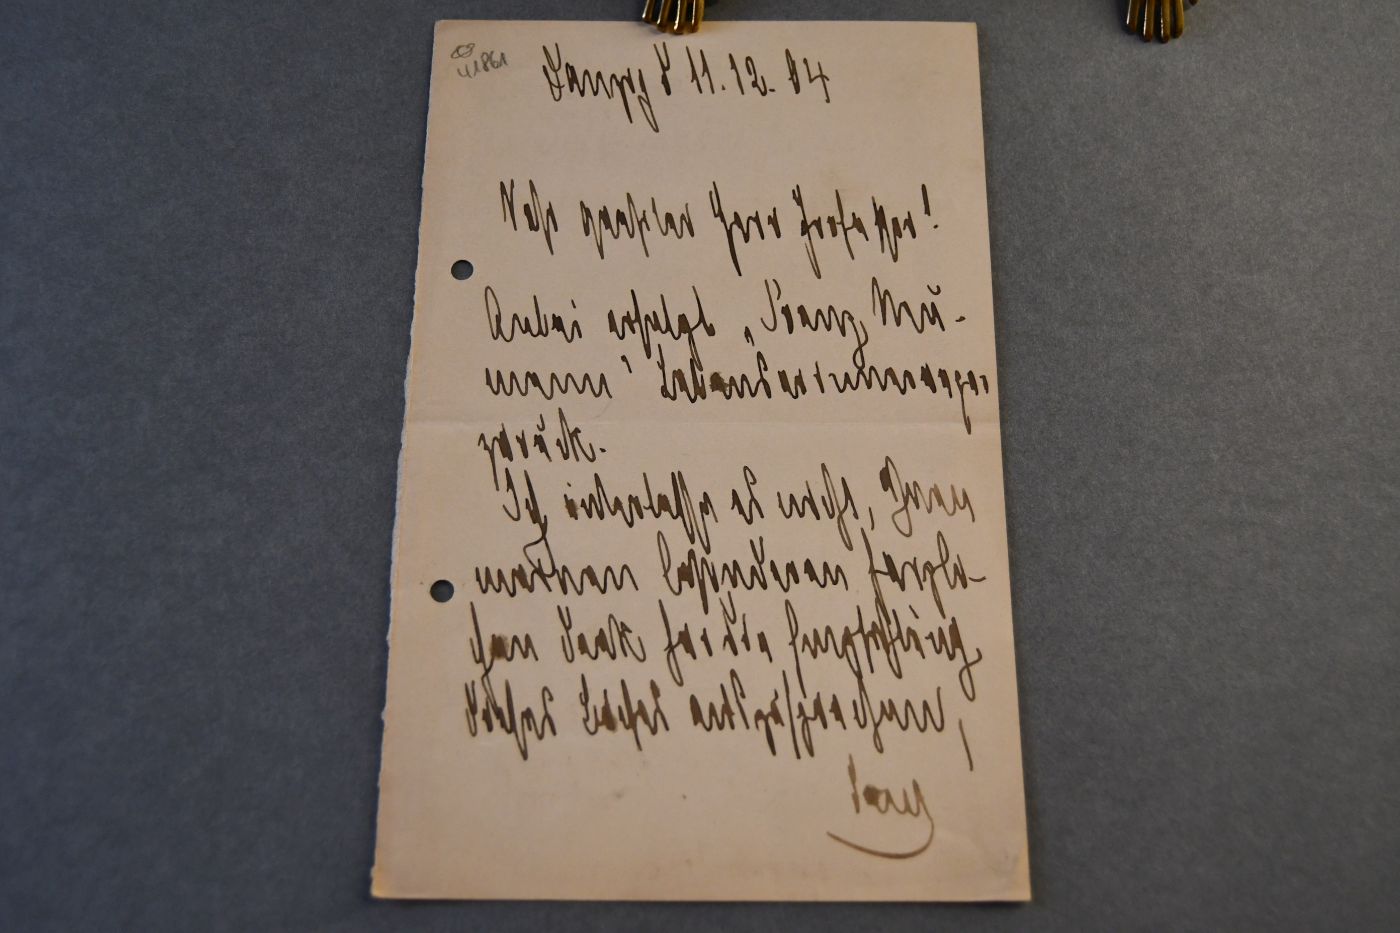 41861
Danzig d 11.12.04
Sehr geehrter Herr Professor!
Anbei erfolgt „Franz Neu-
mann" Lebenserinnerungen
zurück.
Ich unterlasse es nicht, Ihnen
meinen besonderen herzli-
chen Dank für die
dieses auszusprechen,